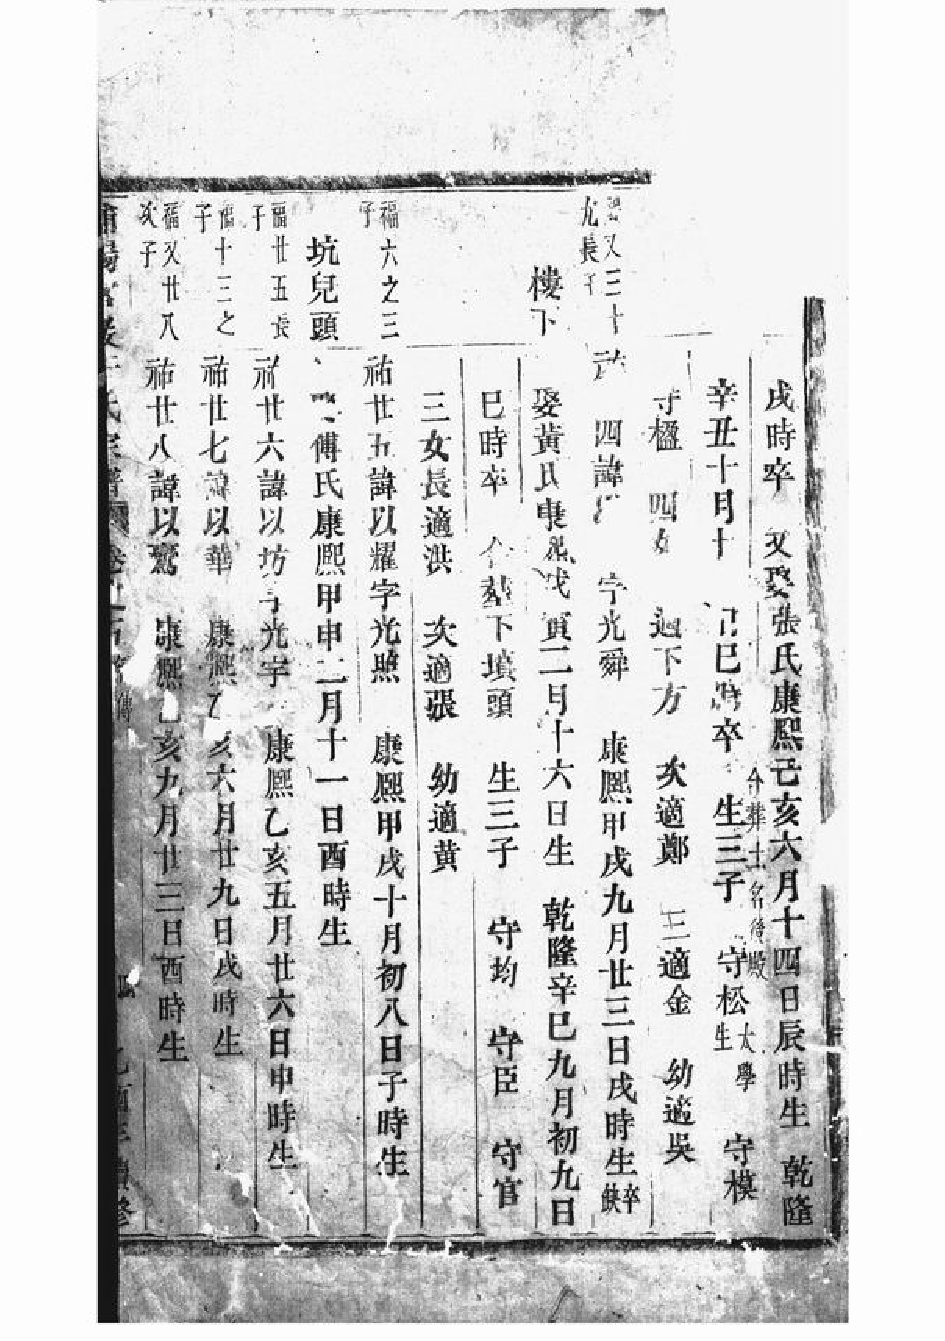 戌時卒 又娶張氏康熙己亥六月十四日辰時生 乾隆
辛丑十月十 巳時卒 合葬土名後殿 生三子 守松太學生 守模
守楹 四女 適下方 次適鄭 三適金 幼適吳
又三十九長子
四諱 字光舜 康熙甲戌九月廿三日戌時生卒缺
樓下
娶黃氏康熙戊寅二月十六日生 乾隆辛巳九月初九日
巳時卒 合葬下墳頭 生三子 守均 守臣 守官
三女長適洪 次適張 幼適黃
福六之三子
祐廿五諱以耀字光照 康熙甲戌十月初八日子時生
坑兒頭
傅氏康熙甲申二月十一日酉時生
福廿五長子
祐廿六諱以坊字光宇 康熙乙亥五月廿六日申時生
福十三之子
祐廿七諱以華 康熙乙亥六月廿九日戌時生
福又廿八次子
祐廿八諱以鸞 康熙乙亥九月廿三日酉時生
氏宗譜 卷 傳 酉年 修